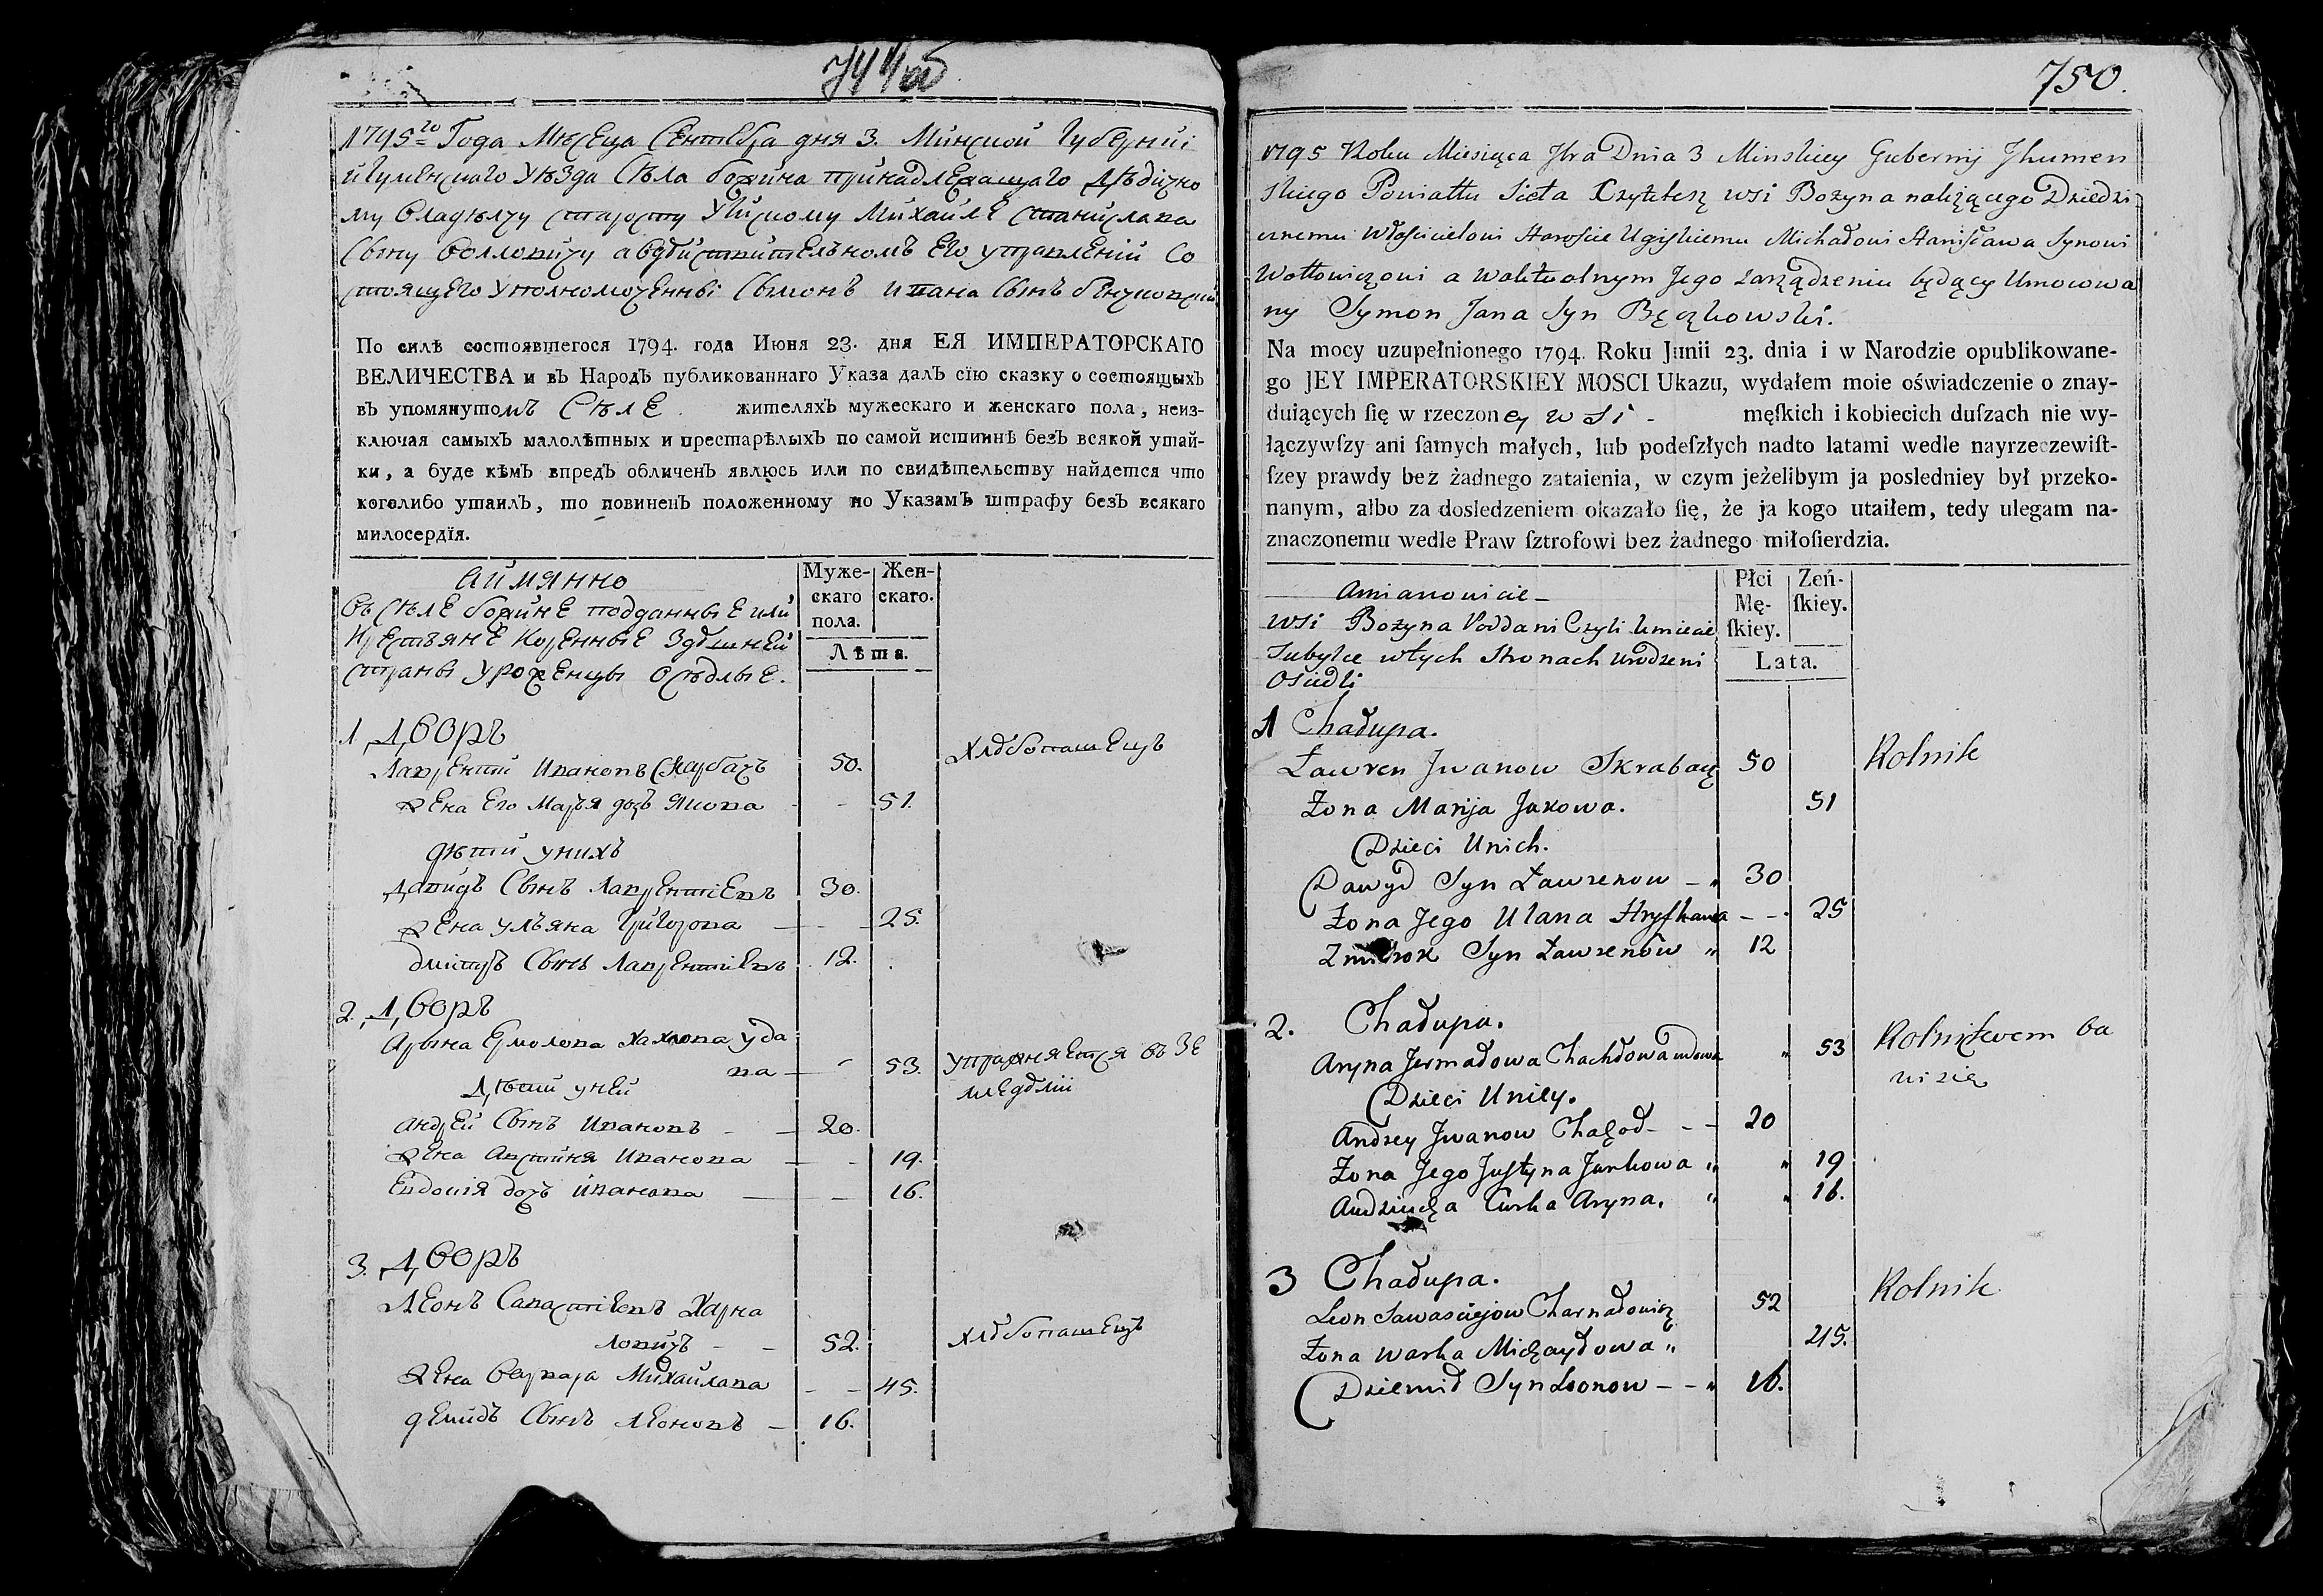 750.
1795го Года Месеца Сентебра дня 3. Минской Губерніи
Игуменскаго Уѣзда Сѣла Божина принадлежащаго Дѣдично
му Владѣлцу старосту Михаиле Станислава
Сыну Воллович а въ действительномъ Его управленіи Со
стоящего Уполномоченны Сымонъ Ивана Сынъ
По силѣ состоявшегося 1794. года Июня 23. дня ЕЯ ИМПЕРАТОРСКАГО
ВЕЛИЧЕСТВА и въ Народъ публикованнаго Указа далъ сїю сказку о состоящыхъ
въ упомянутомъ Сѣле жителяхъ мужескаго и женскаго пола, неиз-
ключая самыхъ малолѣтныхъ и престарѣлыхъ по самой истиннѣ безъ всякой утай-
ки, а буде кѣмъ впредъ обличенъ явлюсь или по свидѣтельству найдется что
коголибо утаилъ, то повиненъ положенному по Указамъ штрафу безъ всякаго
милосердїя.
Аимянно
Въ Сѣле Божине подданные или
Крестьяне Коренные Здѣшней
страны Уроженцы Осѣдлые.
Муже-
скаго
пола.
Жен-
скаго.
Лѣта.
1 Дворъ
Лаврентий Ивановъ Скарбачъ 50. Хлѣбопашецъ
Жена Его Марья дочь Якова - - 51.
Дѣти у нихъ
Давидъ Сынъ Лаврентіевъ 30.
Жена Ульяна Григорова - - 25.
Дмитръ Сынъ Лаврентіевъ 12.
2. Дворъ
Арына Ермолова Хахлова удо
ва - - 53. Упражняется въ Зе
мледѣліи
Дѣти у ней
Андрей Сынъ Ивановъ - - 20.
Жена Австиня Иванова - - 19.
Евдокія дочь Иванова - - 16.
3. Дворъ
Леонъ Савастіевъ Харна
ловичъ - - 52. Хлѣбопашецъ
Жена Варвара Михайлава - - 45.
Демидъ Сынъ Леоновъ - 16.
1795 Roku Miesiąca 7bra Dnia 3 Minskiey Gubernij Jhumen
skiego Powiattu Sieła wsi Bożyna nalizącego Dziedzi
cznemu Włascicielowi Staroscie Ugiskiemu Michałowi Stanisława Synowi
Wołłowiczowi a waktualnym Jego zarządzeniu będący Umocowa
ny Symon Jana Syn Bęczkowski.
Na mocy uzupełnionego 1794. Roku Junii 23. dnia i w Narodzie opublikowane-
go JEY IMPERATORSKIEY MOSCI Ukazu, wydałem moie oświadczenie o znay-
duiących ſię w rzeczoney wsi - męſkich i kobiecich duſzach nie wy-
łączywſzy ani ſamych małych, lub podeſzłych nadto latami wedle nayrzeczewiſt-
ſzey prawdy bez żadnego zataienia, w czym jeżelibym ja posledniey był przeko-
nanym, albo za dosledzeniem okazało ſię, że ja kogo utaiłem, tedy ulegam na-
znaczonemu wedle Praw ſztrofowi bez żadnego miłoſierdzia.
Amianowicie -
wsi Bożyna Poddani Czyli kmiecie
Tubylce wtych Stronach urodzeni
Osiedli
Płci
Mę-
ſkiey.
Zeń-
ſkiey.
Lata.
1 Chałupa.
Ławren Jwanow Skrabacz 50 Rolnik
Żona Marija Jakowa. 51
Dzieci Unich.
Dawyd Syn Ławrenow - 30
Żona Jego Ulana Hryszkawa - - 25
Syn Ławrenow " 12
2. Chałupa.
Aryna Jermałowa Chachłowa wdowa " 53 Rolnictwem ba
wi się
Dzieci Uniey.
Andrey Jwanow Chachoł - - - 20
Żona Jego Justyna Jankowa " " 19
Audziucha Curka Aryna. " " 16.
3 Chałupa.
Leon Sawasciejow Charnałowicz 52 Rolnik
Żona Warka Michayłowa " 45.
Dziemid Syn Leonow - - " 16.